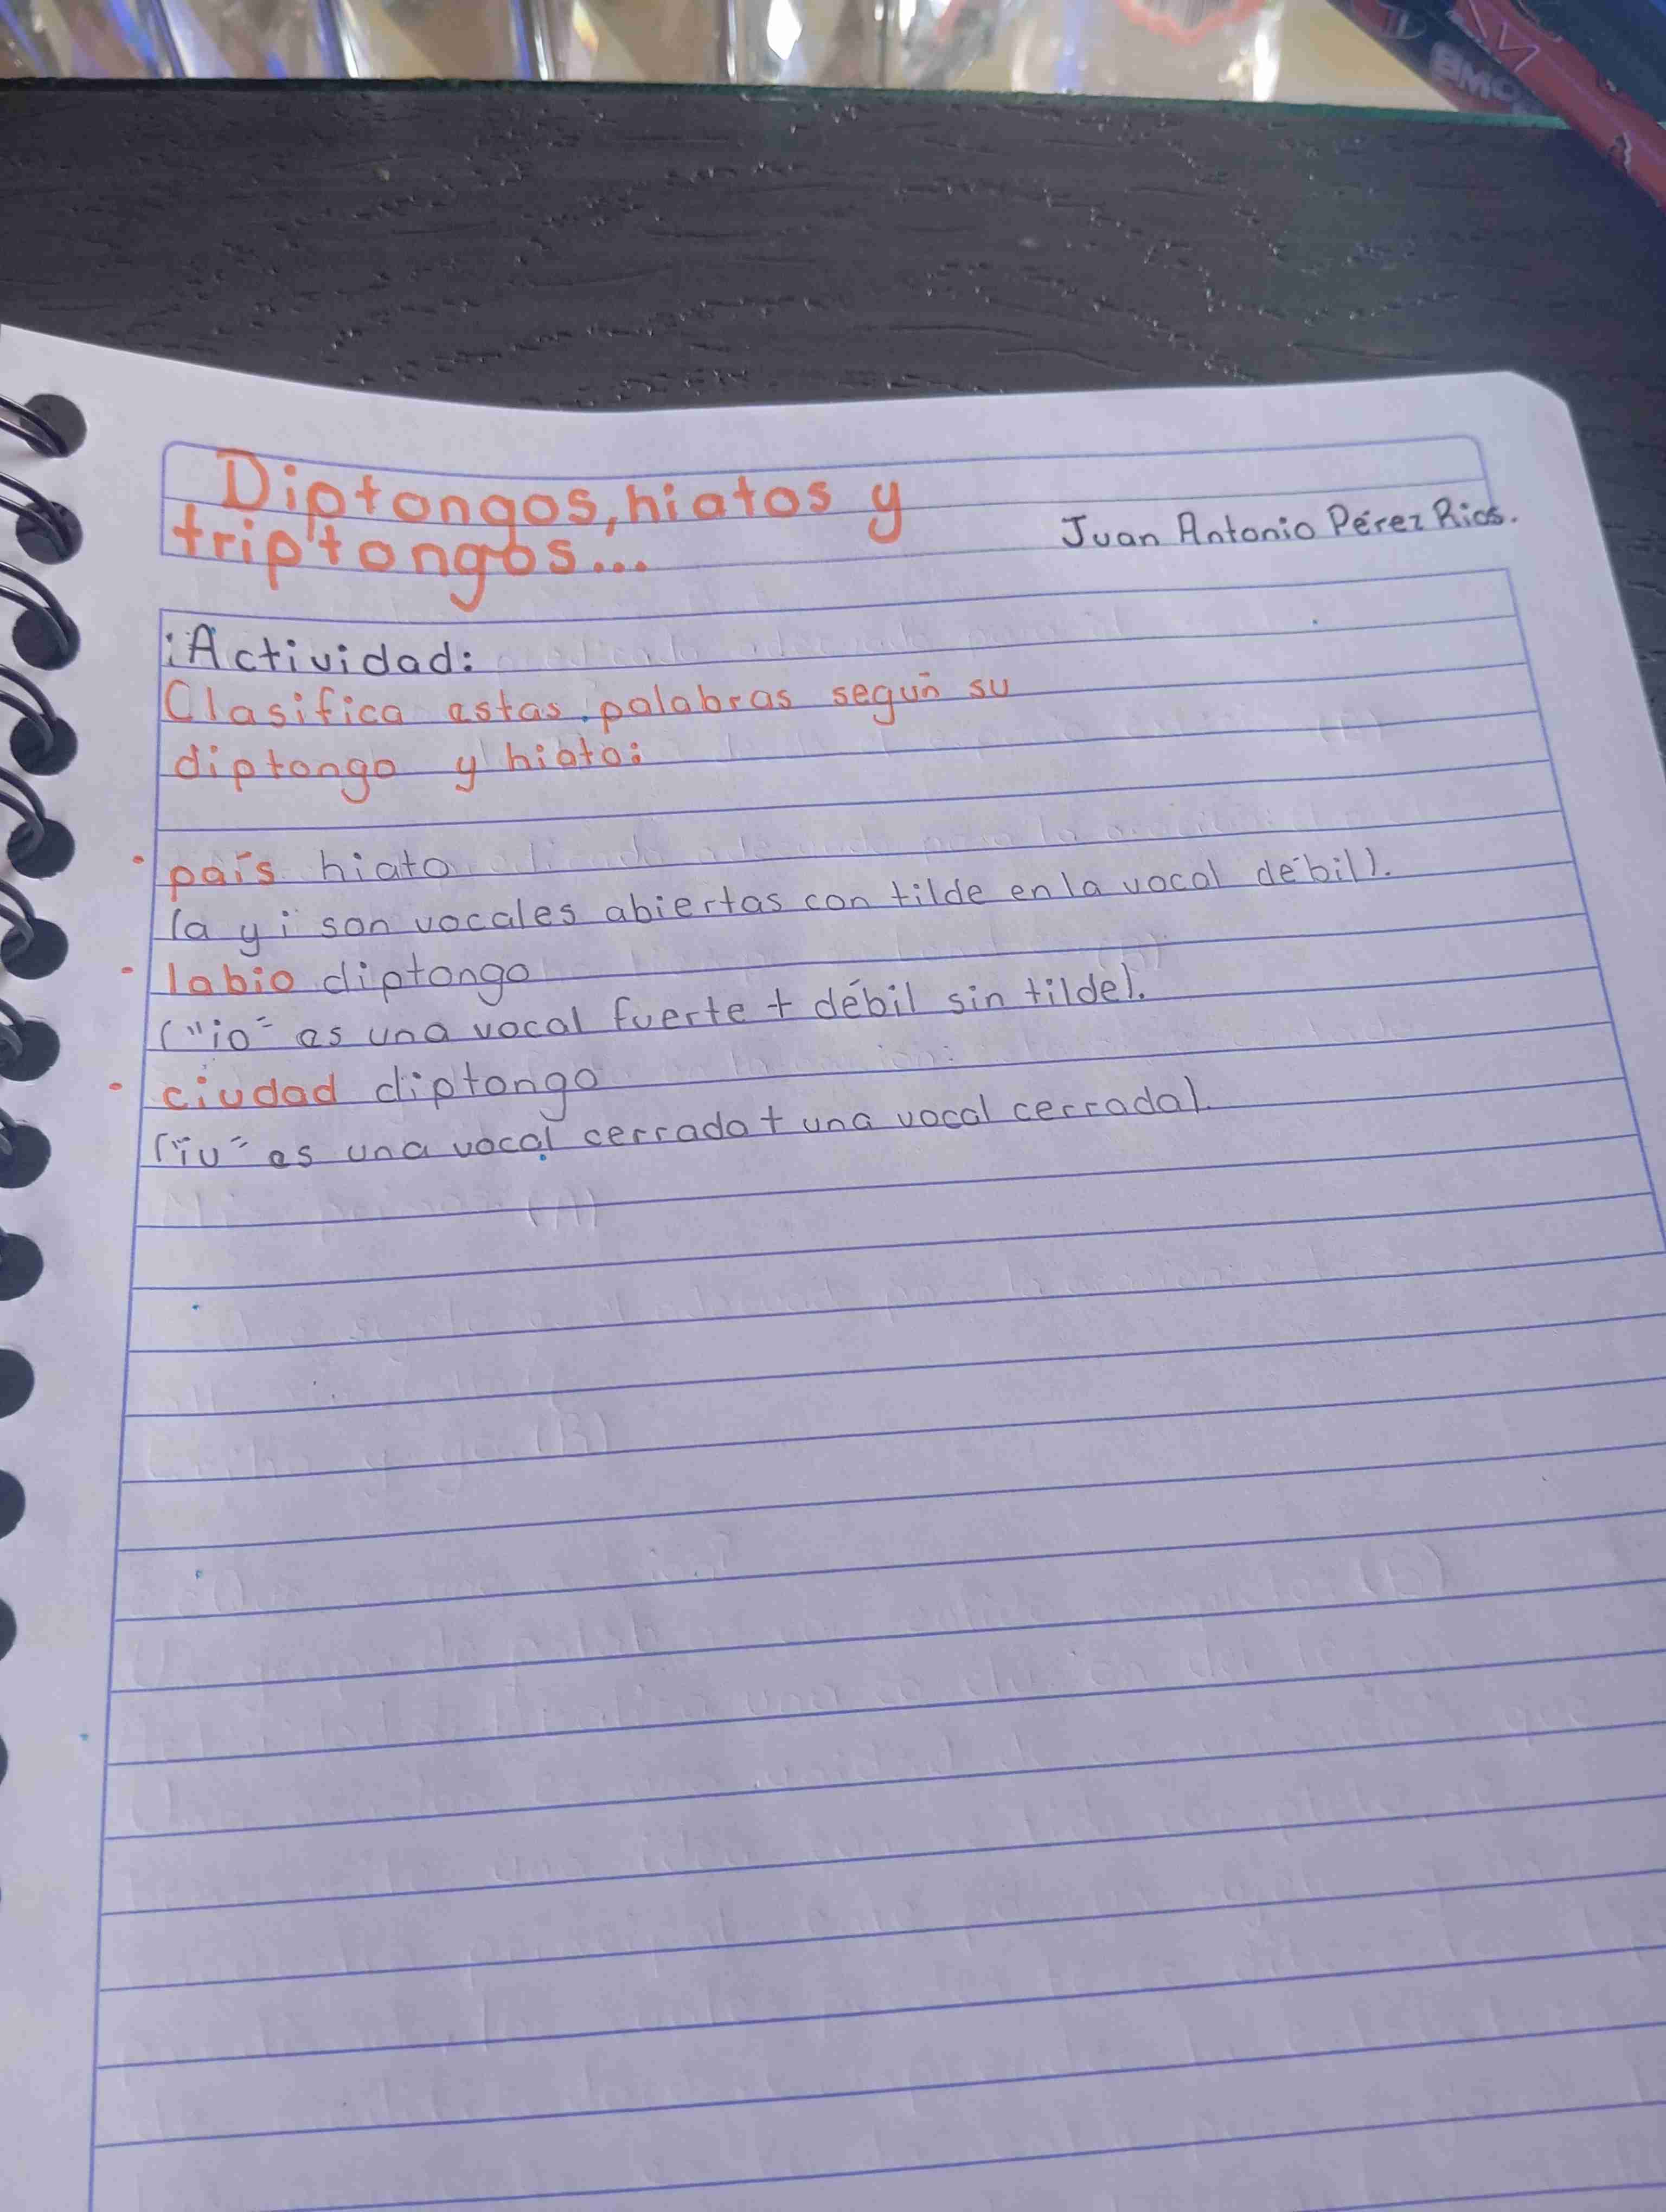 Diptongos, hiatos y
triptongos...
Juan Antonio Pérez Rios.
¡Actividad:
Clasifica estas palabras según su
diptongo y hiato:
• país hiato
(a y i son vocales abiertas con tilde en la vocal débil).
• labio diptongo
("io" es una vocal fuerte + débil sin tilde).
• ciudad diptongo
("iu" es una vocal cerrada + una vocal cerrada).
BMO